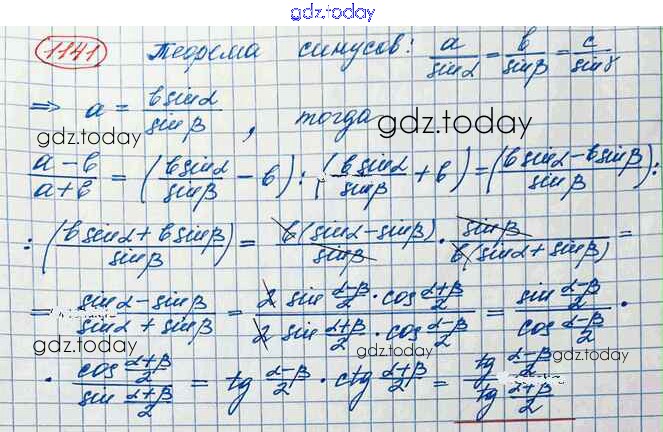 gdz.today
1141 Теорема синусов: a/sinα = b/sinβ = c/sinγ
⇒ a = bsinα/sinβ, тогда
gdz.today gdz.today
(a-b)/(a+b) = (bsinα/sinβ - b) : (bsinα/sinβ + b) = ((bsinα - bsinβ)/sinβ) :
: ((bsinα + bsinβ)/sinβ) = b(sinα - sinβ)/sinβ · sinβ/b(sinα + sinβ) =
= (sinα - sinβ)/(sinα + sinβ) = (2 sin (α-β)/2 · cos (α+β)/2)/(2 sin (α+β)/2 · cos (α-β)/2) = (sin (α-β)/2)/(cos (α-β)/2) ·
gdz.today gdz.today gdz.today
· (cos (α+β)/2)/(sin (α+β)/2) = tg (α-β)/2 · ctg (α+β)/2 = (tg (α-β)/2)/(tg (α+β)/2)